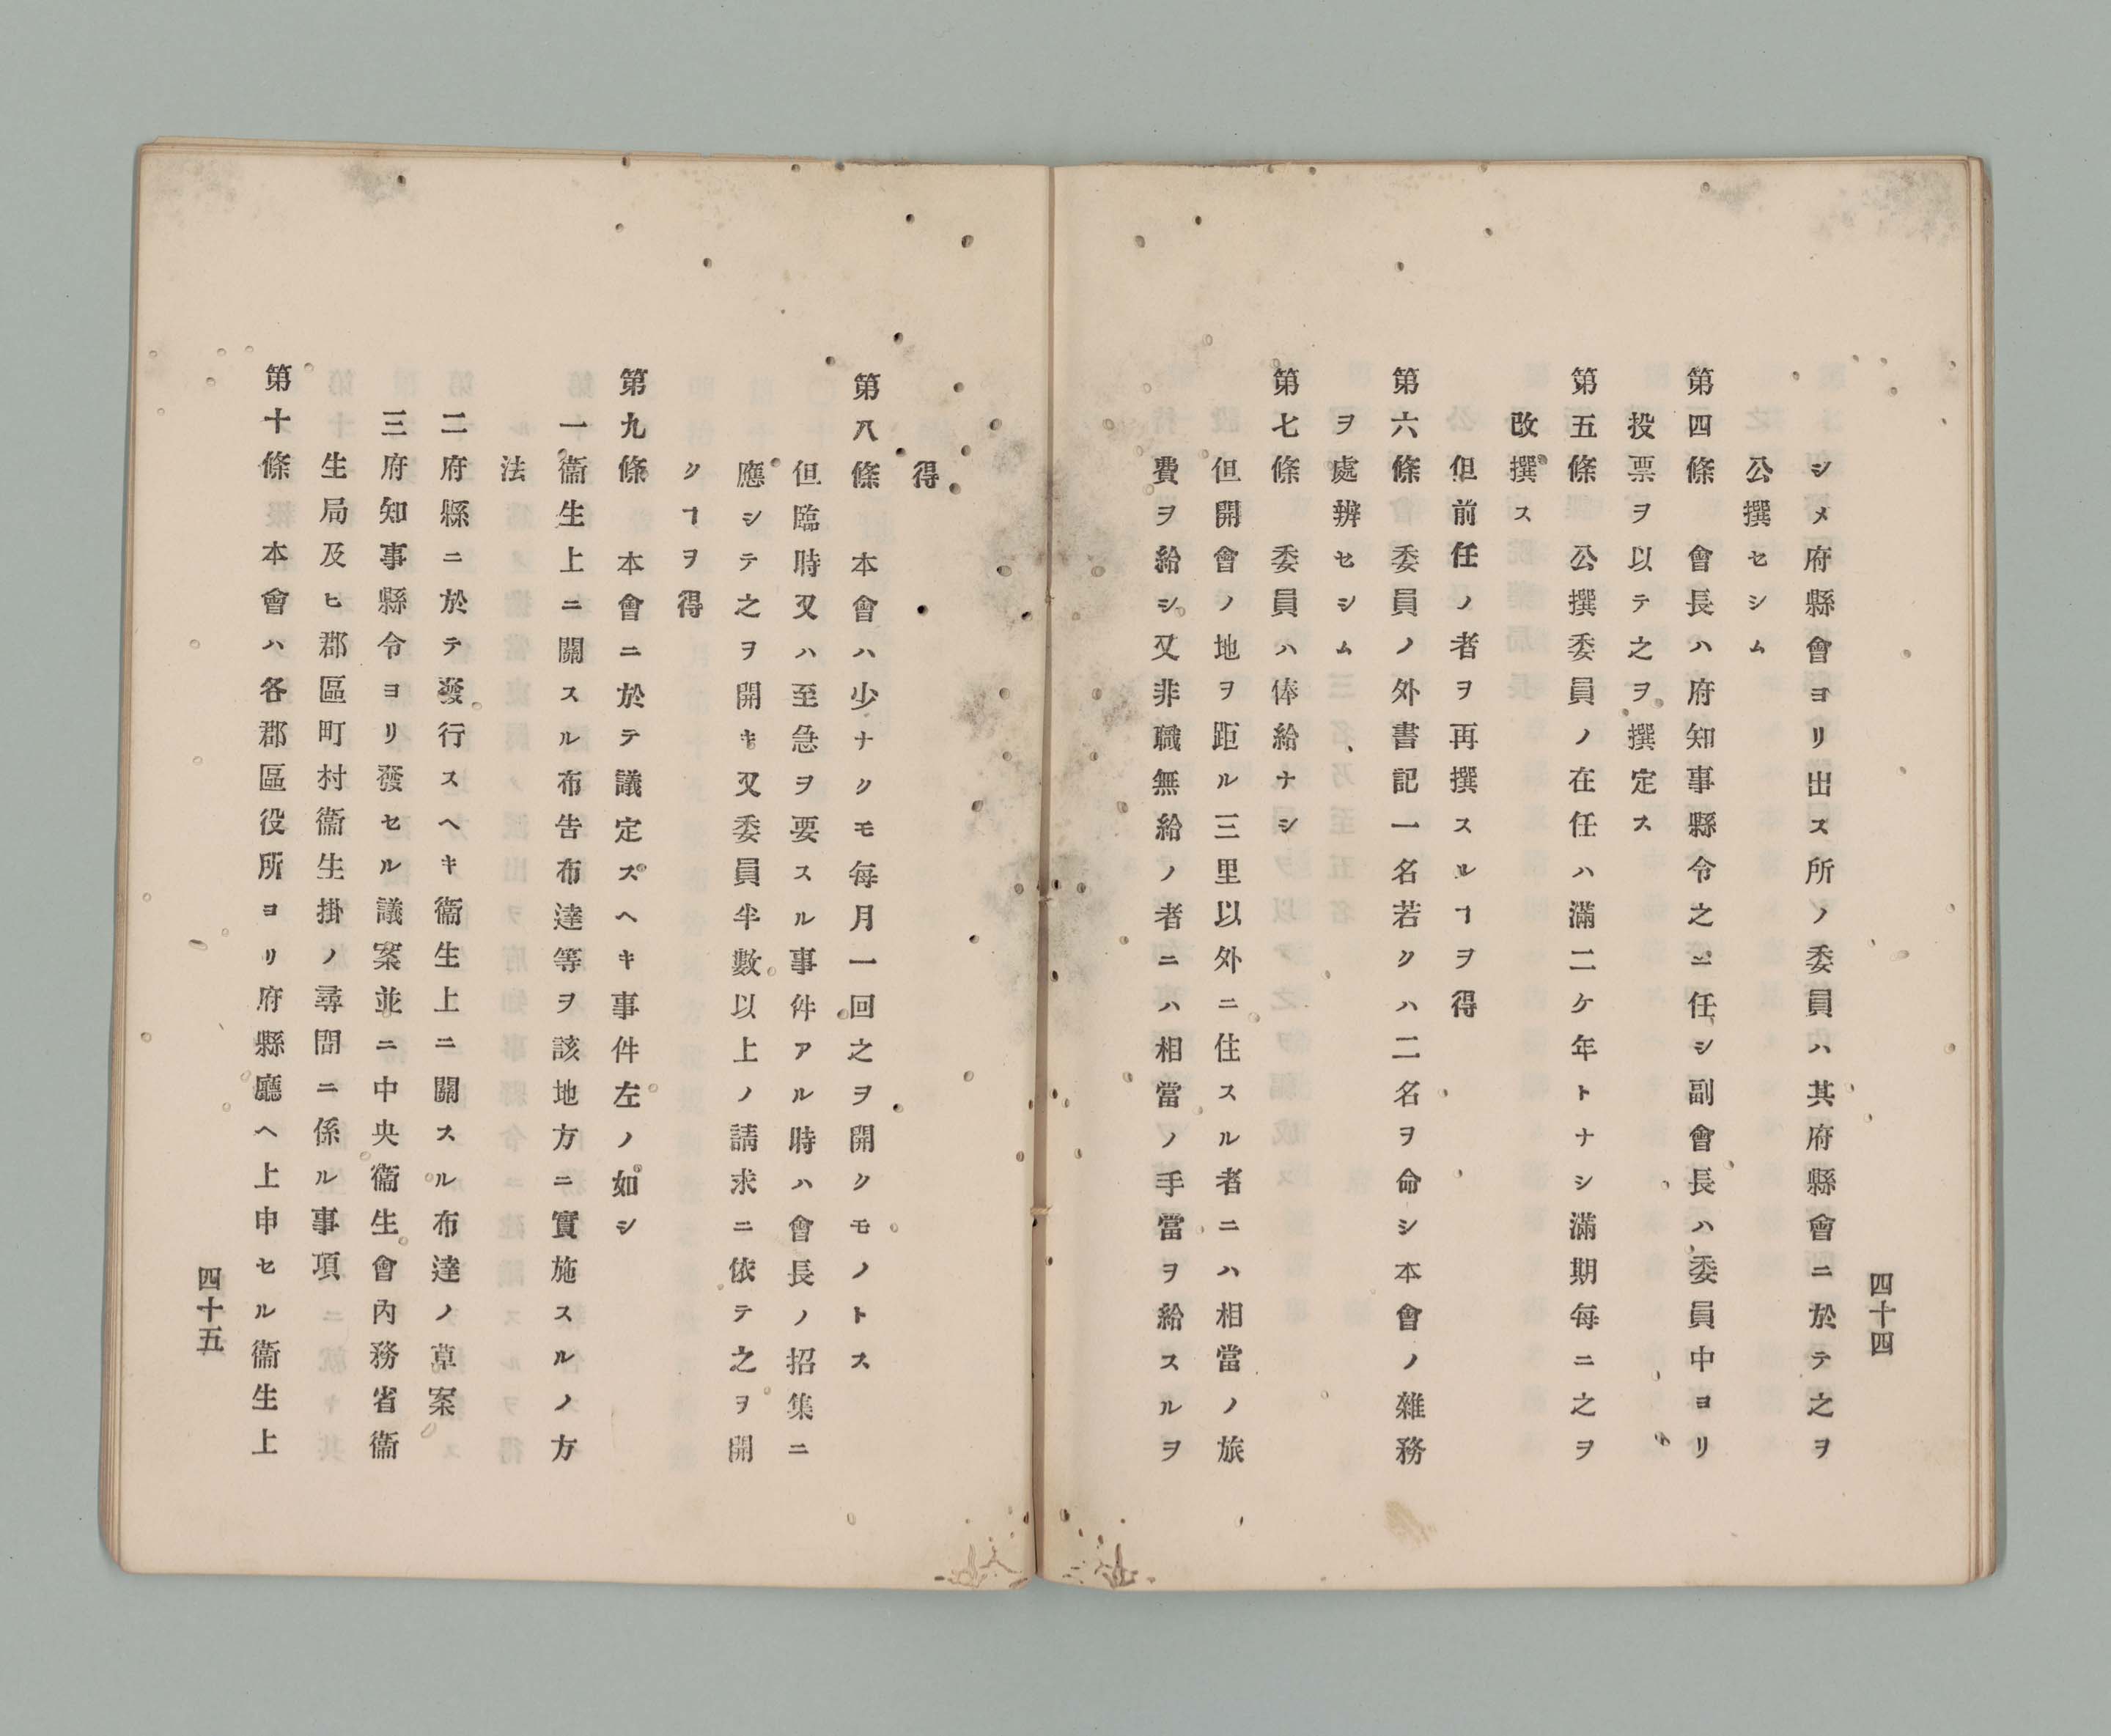 シメ府縣會ヨリ出ス所ノ委員ハ其府縣會ニ於テ之ヲ
公撰セシム
第四條 會長ハ府知事縣令之ニ任シ副會長ハ委員中ヨリ
投票ヲ以テ之ヲ撰定ス
第五條 公撰委員ノ在任ハ滿二ケ年トナシ滿期毎ニ之ヲ
改撰ス
但前任ノ者ヲ再撰スルヿヲ得
第六條 委員ノ外書記一名若クハ二名ヲ命シ本會ノ雜務
ヲ處辨セシム
第七條 委員ハ俸給ナシ
但開會ノ地ヲ距ル三里以外ニ住スル者ニハ相當ノ旅
費ヲ給シ又非職無給ノ者ニハ相當ノ手當ヲ給スルヲ
四十四
得
第八條 本會ハ少ナクモ毎月一回之ヲ開クモノトス
但臨時又ハ至急ヲ要スル事件アル時ハ會長ノ招集ニ
應シテ之ヲ開キ又委員半數以上ノ請求ニ依テ之ヲ開
クヿヲ得
第九條 本會ニ於テ議定スヘキ事件左ノ如シ
一衞生上ニ關スル布告布達等ヲ該地方ニ實施スルノ方
法
二府縣ニ於テ發行スヘキ衞生上ニ關スル布達ノ草案
三府知事縣令ヨリ發セル議案並ニ中央衞生會內務省衞
生局及ヒ郡區町村衞生掛ノ尋問ニ係ル事項
第十條 本會ハ各郡區役所ヨリ府縣廳ヘ上申セル衞生上
四十五